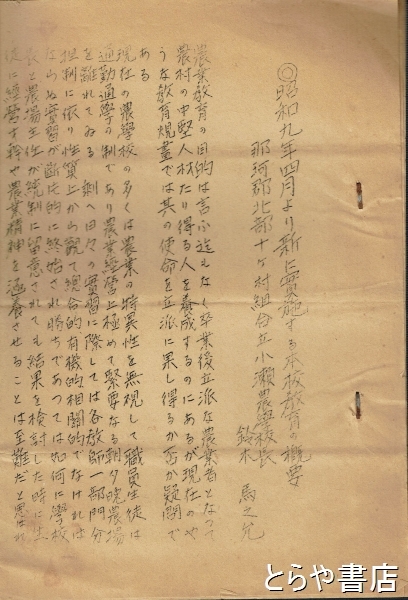 ◎昭和九年四月より新に實施する本校教育の概要
那珂郡北部十ヶ村組合立小瀬農學校長
鈴木 馬之允
農業教育の目的は言ふ迄もなく卒業後立派な農業者となって
農村の中堅人材たり得る人を養成するのにあるが現在のや
うな教育規畫では其の使命を立派に果し得るか否か疑問で
ある
現在の農學校の多くは農業の特異性を無視して職員生徒は
通勤通學の制であり農業經營上極めて緊要なる朝夕晩農場
を離れてゐる 剰へ日々の實習に際しては各教師一部門分
担制に依り性質上から観て綜合的有機的相関的でなければ
ならぬ實習が断片的に終始され勝ちであつては如何に學校
長と農場主任が統制に留意されても結果を検討した時に生
徒に經營す 幹や農業精神を涵養させることは至難だと思はれ
とらや書店